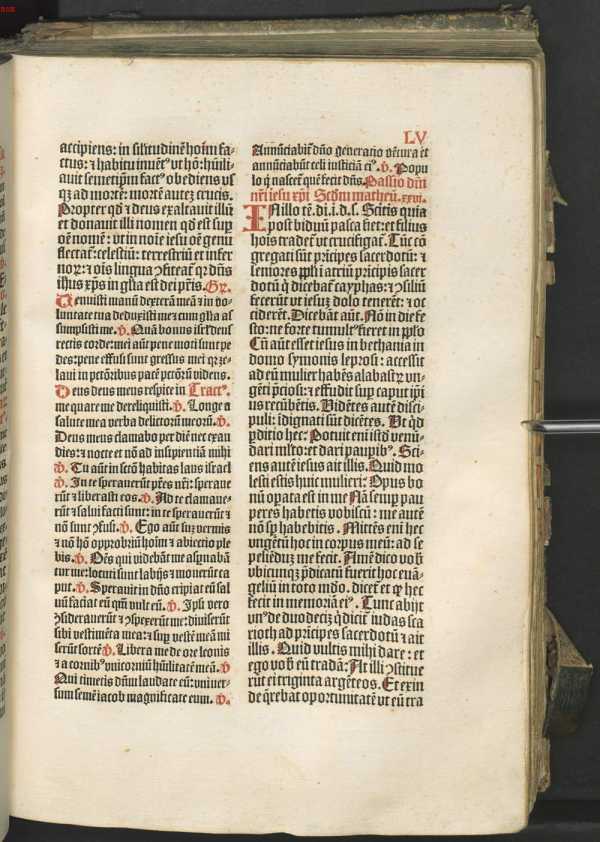 LV
accipiens: in sil'itudinē hoīm fa-
ctus: ⁊ habitu inuēt' vt hō: hūili-
auit semetipm̄ fact' obediens vs
qꝫ ad mortē: mortē autez crucis.
Propter qđ ⁊ deus exaltauit illū:
et donauit illi nomen qđ est sup̄
oē nomē: vt in noīe iesu oē genu
flectat̄: celestiū: terrestriū et infer
norꝝ: ⁊ oīs lingua ꝯfiteat̄ qꝛ dn̄s
ihus xp̄s in gl'ia est dei pr̄is. Gr̄.
Tenuisti manū dexterā meā: ⁊ in vo-
luntate tua deduxisti me ⁊ cum gl'ia as
sumpsisti me. V̄. Quā bonus isr̄l deus
rectis corde: mei aūt pene moti sunt pe
des: pene effusi sunt gressus mei qꝛ ze-
laui in pctōribus pacē pctōrū videns.
Deus deus meus respice in Tract'.
me quare me dereliquisti. V̄. Longe a
salute mea verba delictorū meorū. V̄.
Deus meus clamabo per diē nec exau
dies: ⁊ nocte et nō ad insipientiā mihi
V̄. Tu aūt in sct̄o habitas laus israel
V̄. In te sperauerūt pr̄es nr̄i: speraue
rūt ⁊ liberasti eos. V̄. Ad te clamaue-
rūt ⁊ salui facti sunt: in te sperauerūt ⁊
nō sunt ꝯfusi. V̄. Ego aūt suꝫ vermis
⁊ nō hō opprobriū hoīm ⁊ abiectio ple
bis. V̄. Oēs qui videbāt me aspnabā
tur me: locuti sunt labijs ⁊ mouerūt ca
put. V̄. Sperauit in dn̄o eripiat eū sal
uū faciat eū qm̄ vult eū. V̄. Ipsi vero
ꝯsiderauerūt ⁊ ꝯspexerūt me: diuiserūt
sibi vestimēta mea: ⁊ sup̄ vestē meā mi
serūt sortē V̄. Libera me de ore leonis
⁊ a cornib' vnicorniū hūilitatē meā. V̄
Qui timetis dn̄m laudate eū: vniuer-
sum semē iacob magnificate eum. V̄.
Annūciabit̄ dn̄o generatio vētura et
annūciabūt celi iusticiā ei'. V̄. Popu
lo q̄ nascet̄ quē fecit dn̄s. Passio dn̄i
nr̄i iesu xp̄i Scd̄m matheū. xxvi.
IN illo tē. di. i. d. s. Scitis quia
post biduū pasca fiet: et filius
hoīs tradet̄ vt crucifigat̄. Tūc cō
gregati sūt prīcipes sacerdotū: ⁊
seniores ppl'i ī atriū prīcipis sacer
dotū q̄ dicebat̄ cayphas: ⁊ ꝯsiliū
fecerūt vt iesuꝫ dolo tenerēt: ⁊ oc
ciderēt. Dicebāt aūt. Nō in die fe
sto: ne forte tumult' fieret in pp̄lo
Cū aūt esset iesus in bethania in
domo symonis leprosi: accessit
ad eū mulier habēs alabastꝝ vn-
gēti p̄ciosi: ⁊ effudit sup̄ caput ip̄i
us recūbētis. Vidētes autē disci-
puli: īdignati sūt dicētes. Vt qđ
ꝑditio hec: Potuit eni istđ venū-
dari mlto: et dari paupib'. Sci-
ens autē iesus ait illis. Quid mo
lesti estis huic mulieri: Opus bo
nū opata est in me Nā semp̄ pau
peres habetis vobiscū: me autē
nō sp̄ habebitis. Mittēs eni hec
vngētū hoc in corpus meū: ad se
peliēduꝫ me fecit. Amē dico vob̄
vbicunqꝫ p̄dicatū fuerit hoc euā-
geliū in toto mūdo. dicet̄ et qꝫ hec
fecit in memoriā ei'. Tunc abijt
vn' de duodeciꝫ q̄ dicit̄ iudas sca
rioth ad prīcipes sacerdotū ⁊ ait
illis. Quid vultis mihi dare: et
ego vob̄ eū tradā: At illi ꝯstitue
rūt ei triginta argēteos. Et exin
de q̄rebat oportunitatē vt eū tra